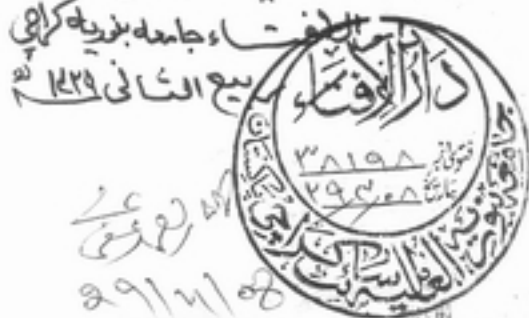 دارالافتاء جامعہ بنوریہ کراچی
ربیع الثانی ۱۴۲۹ھ
دارالافتاء
فتویٰ نمبر ۳۸۱۹۸
تاریخ ۲۹،۴،۰۸
جامعہ بنوریہ العالمیہ سائٹ کراچی پاکستان